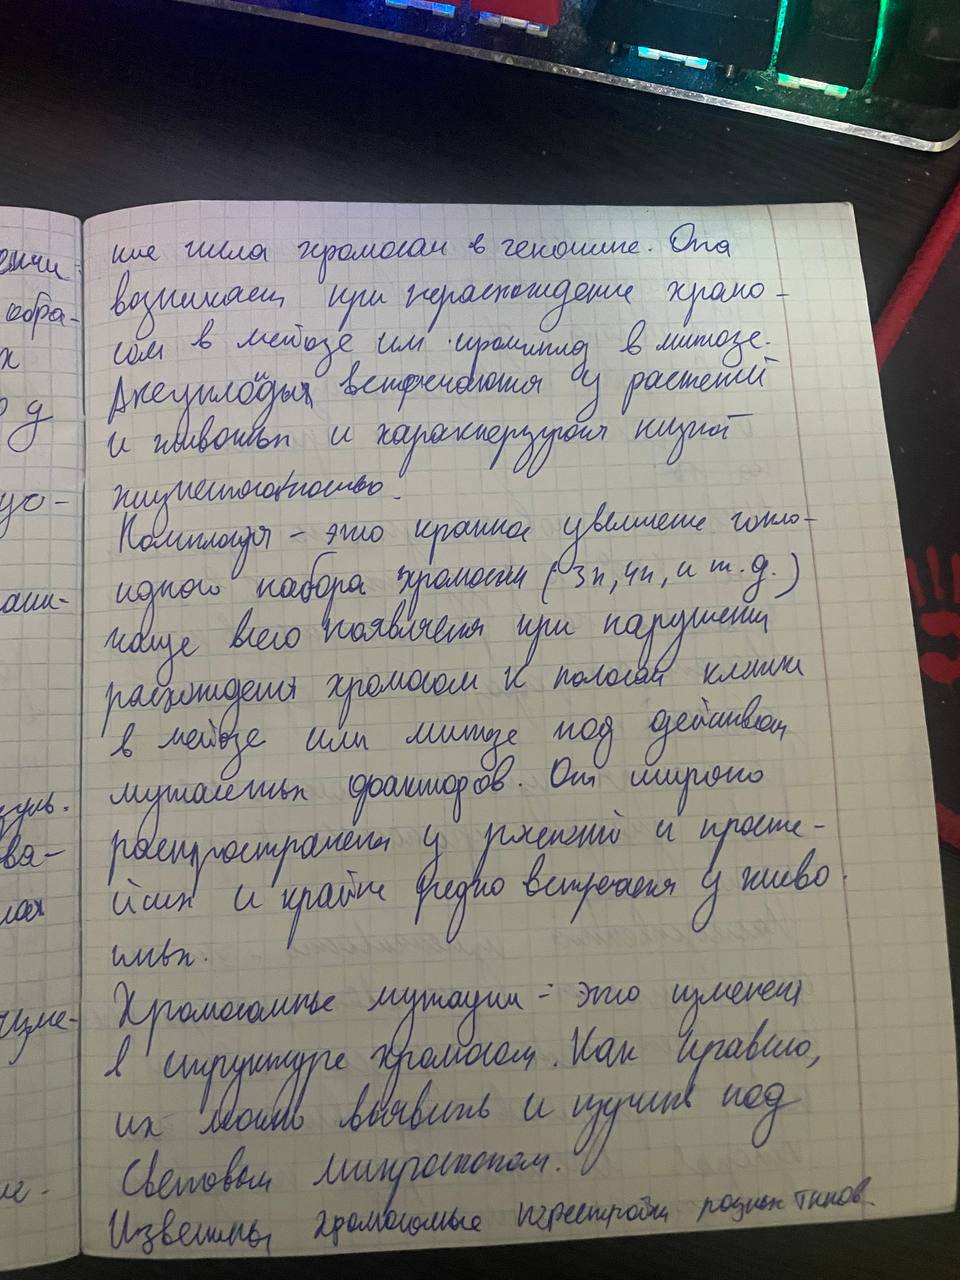 ние числа хромосом в геноме. Она
возникает при нерасхождение хромо-
сом в мейозе или хроматид в митозе.
Анеуплоидия встречаются у растений
и животных и характеризуются низкой
жизнеспособностью.
– это кратное увеличение гапло-
идного набора хромосом (3n, 4n, и т.д.)
чаще всего появляется при нарушении
расхождения хромосом к полюсам клетки
в мейозе или митозе под действием
мутагенных факторов. Он широко
распространена у растений и просте-
йших и крайне редко встречается у живо-
тных.
Хромосомные мутации – это изменения
в структуре хромосом. Как правило,
их можно выявить и изучить под
световым микроскопом.
Известны хромосомные перестройки разных типов